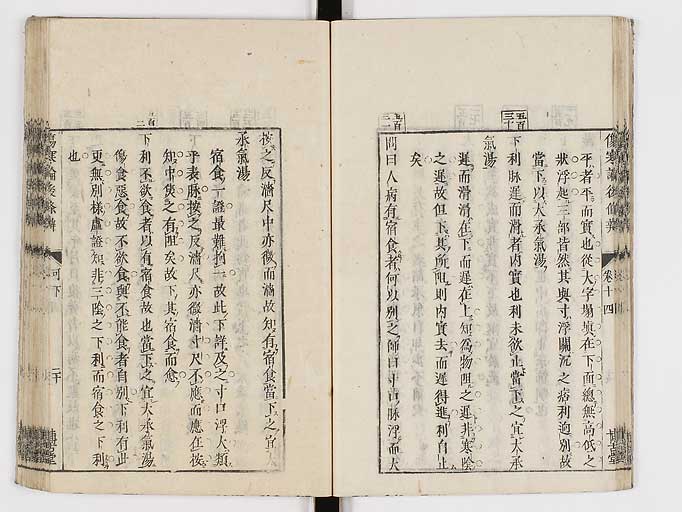 平者平而實也從大字塌填在下面總無高低之
狀浮起三部皆然其與寸浮關沉之病利迥別故
當下以大承氣湯
五百三十
下利脉遲而滑者內實也利未欲止當下之宜大承
氣湯
遲而滑滑在下而遲在上知為物阻之遲非寒陰
之遲故但下其所阻則內實去而遲得進利自止
矣
問曰人病有宿食者何以別之師曰寸口脉浮而大
按之反濇尺中亦微而濇故知有宿食當下之宜大
承氣湯
宿食一證最難拘一故此下詳及之寸口浮大類
乎表脉按之反濇尺亦微濇寸尺不應而應在按
知中焦之有阻矣故下其宿食而愈
下利不欲食者以有宿食故也當下之宜大承氣湯
傷食惡食故不欲食與不能食者自別下利有此
更無別樣虛證知非三陰之下利而宿食之下利
也
傷寒論後條辨
卷十四
傷寒論後條辨
可下